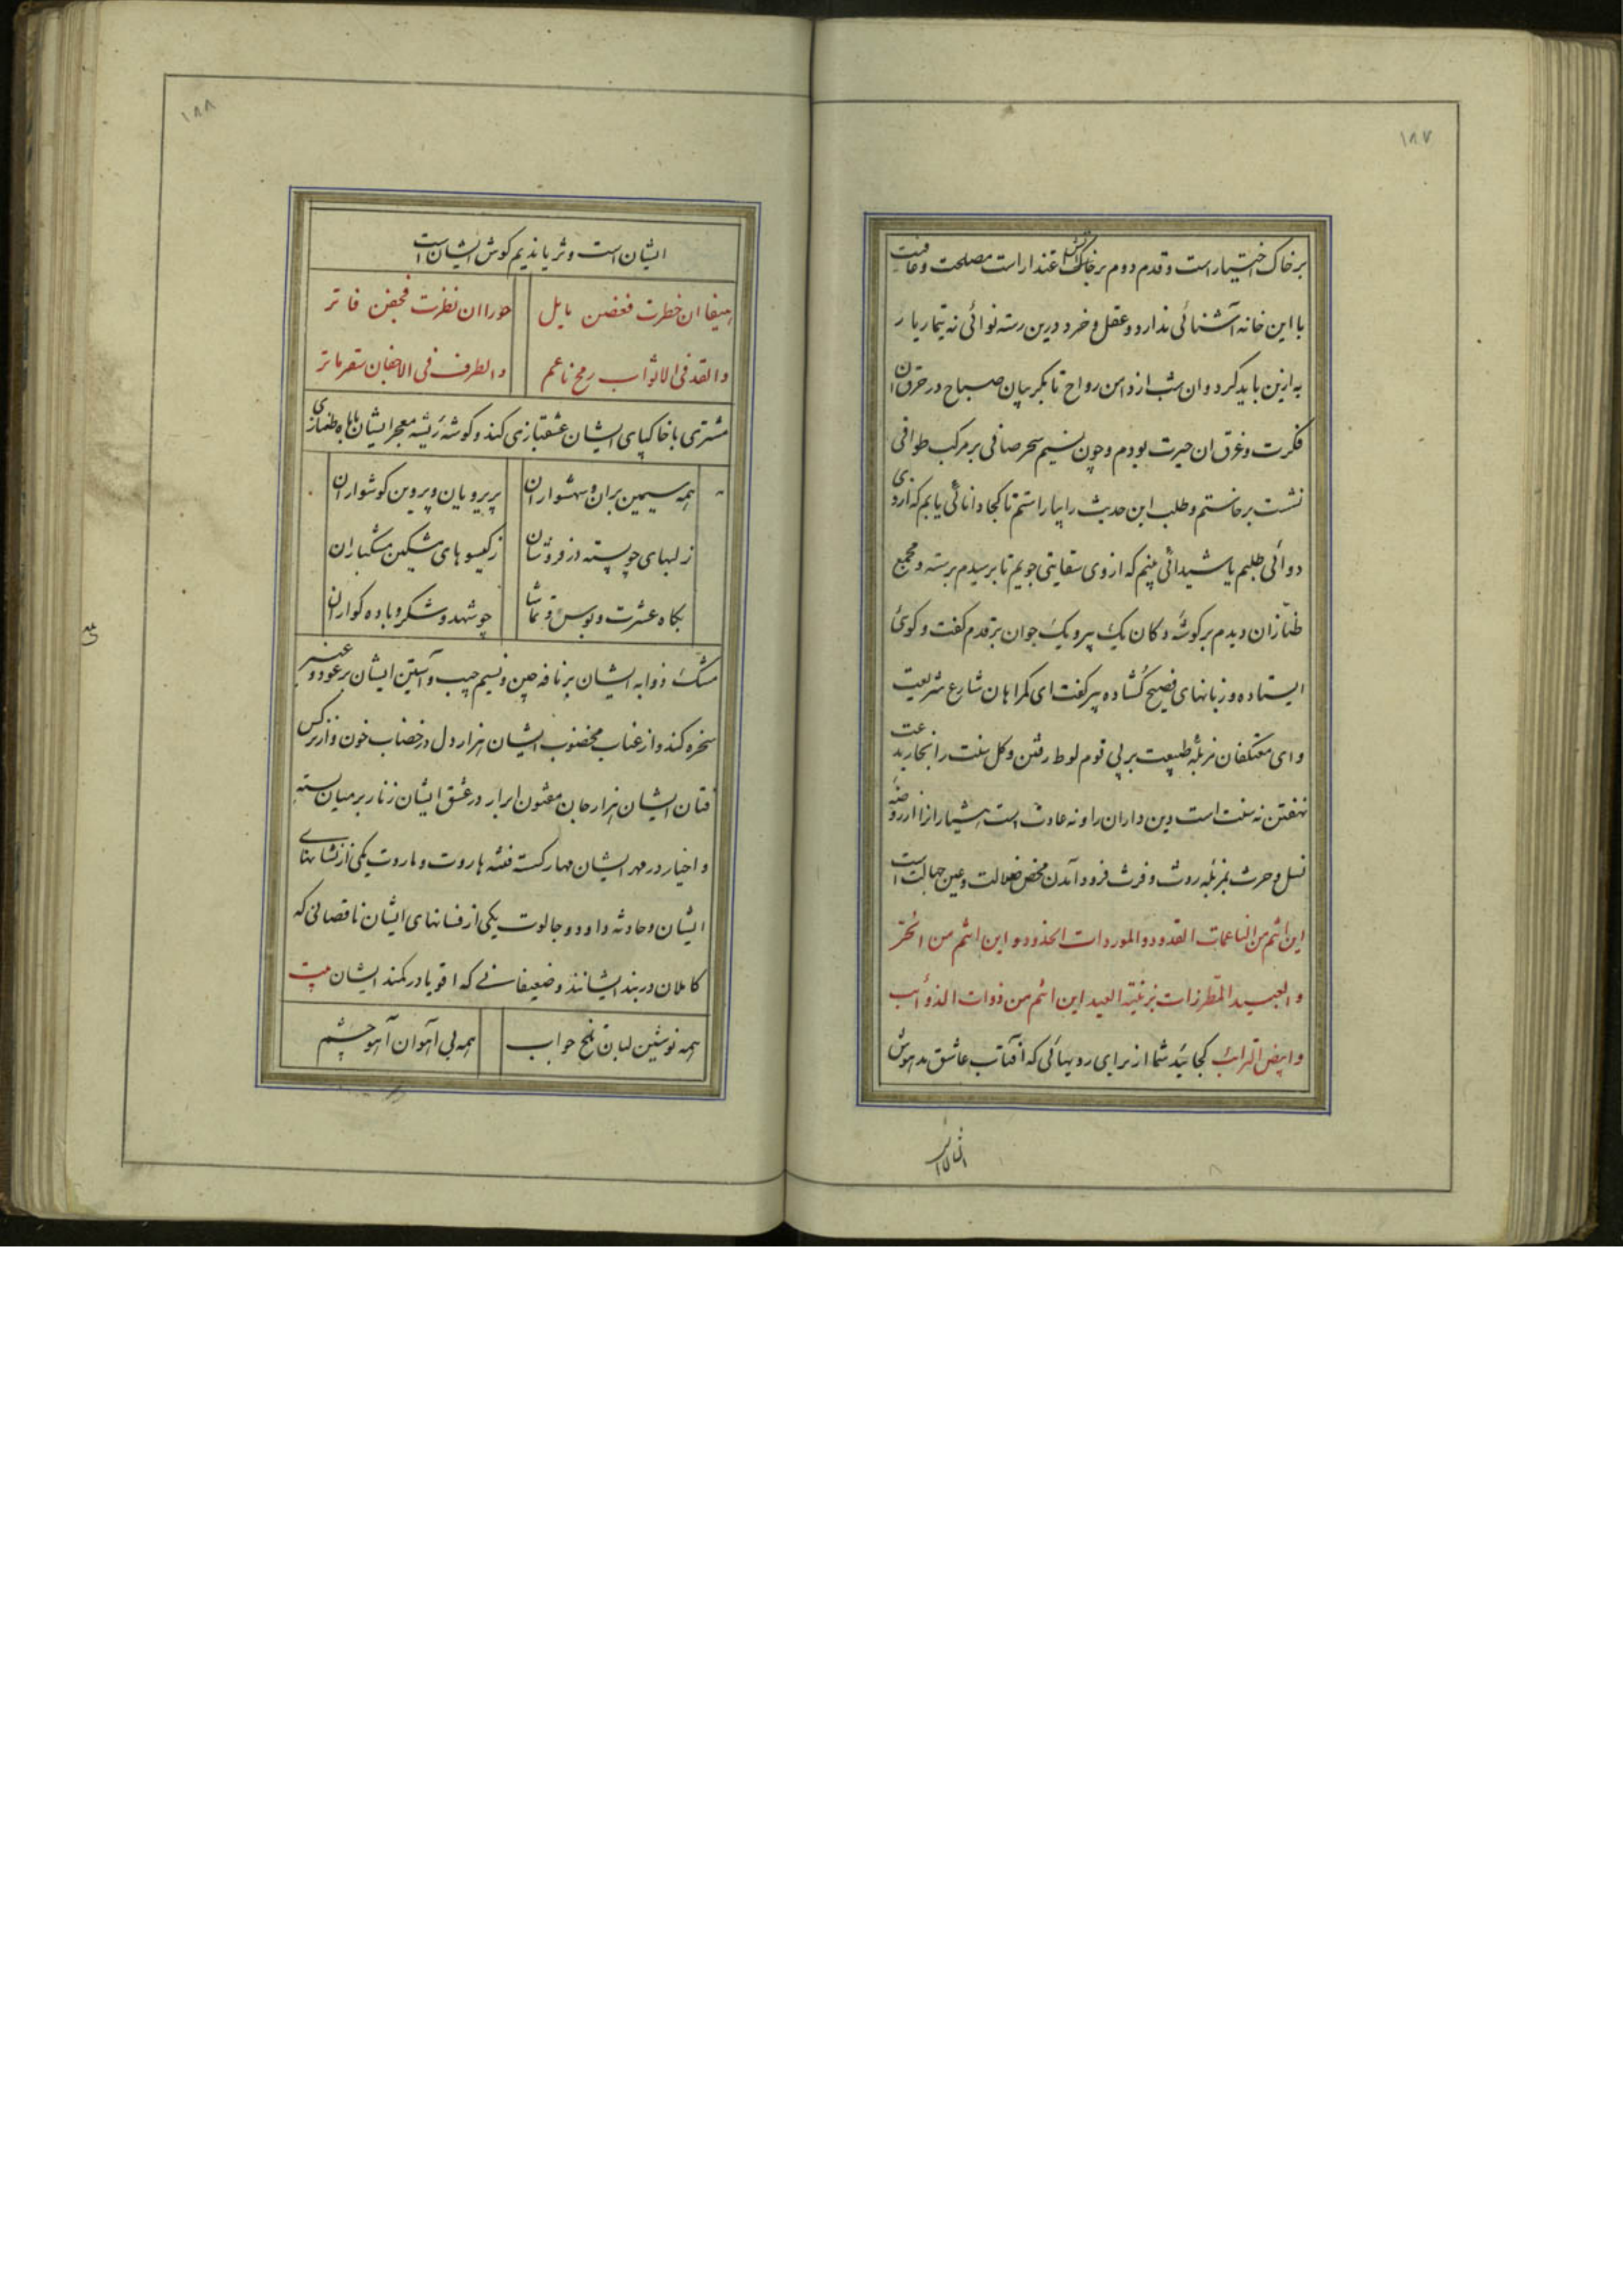 ۱۸۷
بر خاک اختیار است و قدم دوم بر خاک عندار است مصلحت و عافیت
با این خانه آشنائی ندارد و عقل و خرد درین رسته نوائی نه تیمار یار
به ازین باید کرد و ان شب از دامن رواح تا بگریبان صباح در حرق ان
فکرت و غرق ان حیرت بودم و چون نسیم سحر صافی بر مرکب طوافی
نشست برخاستم و طلب این حدیث را بیاراستم تا کجا دانائی یابم که ازوی
دوائی طلبم یا شیدائی بینم که از وی سقایتی جویم تا برسیدم برسته و مجمع
طنازان دیدم بر گوشه دکان یک پیر و یک جوان بر قدم گفت و گوی
ایستاده و زبانهای فصیح گشاده پیر گفت ای گمراهان شارع شریعت
و ای معتکفان مزبله طبیعت بر پی قوم لوط رفتن و گل سنت را بخار بدعت
نهفتن نه سنت است دین داران را و نه عادت است هشیاران را از روضه
نسل و حرث بمزبله روث و فرث فرود آمدن محض ضلالت و عین جهالت است
این انتم من الناعمات القدود و الموردات الخدود و این انتم من الخرّ
و العبید المطرزات بزینة العید این انتم من ذوات الذوائب
و ابیض الترائب کجائید شما از برای رویهائی که آفتاب عاشق مدهوش
۱۸۸
ایشان است و ثریا ندیم گوش ایشان است
هیفا ان خطرت فغصن یابل
حورا ان نظرت فجفن فاتر
و القد فی الاثواب رمح ناعم
و الطرف فی الاجفان سقر باتر
مشتری با خاکپای ایشان عشقبازی کند و گوشه ریشه معجر ایشان با ماه طنازی
همه سیمین بران و سهشواران
پریرویان و پروین گوشواران
ز لبهای چو پسته در فروشان
ز گیسوهای مشکین مشکباران
بگاه عشرت و بوس و تماشا
چو شهد و شکر و باده گواران
مشک ذوابه ایشان بر نافه چین و نسیم جیب و آستین ایشان بر عود و عنبر
سخره کند و از عناب مخضوب ایشان هزار دل در خضاب خون و از نرگس
فتان ایشان هزار جان مفتون ابرار در عشق ایشان زنار بر میان بسته
و اخیار در مهر ایشان مهار گسته فتنه هاروت و ماروت یکی از نشانهای
ایشان و حادثه داود و جالوت یکی از فسانهای ایشان ناقصانی که
کاملان در بند ایشانند و ضعیفانی که اقویا در کمند ایشان بیت
همه نوشین لبان تلخ جواب
همه بی آهوان آهو چشم